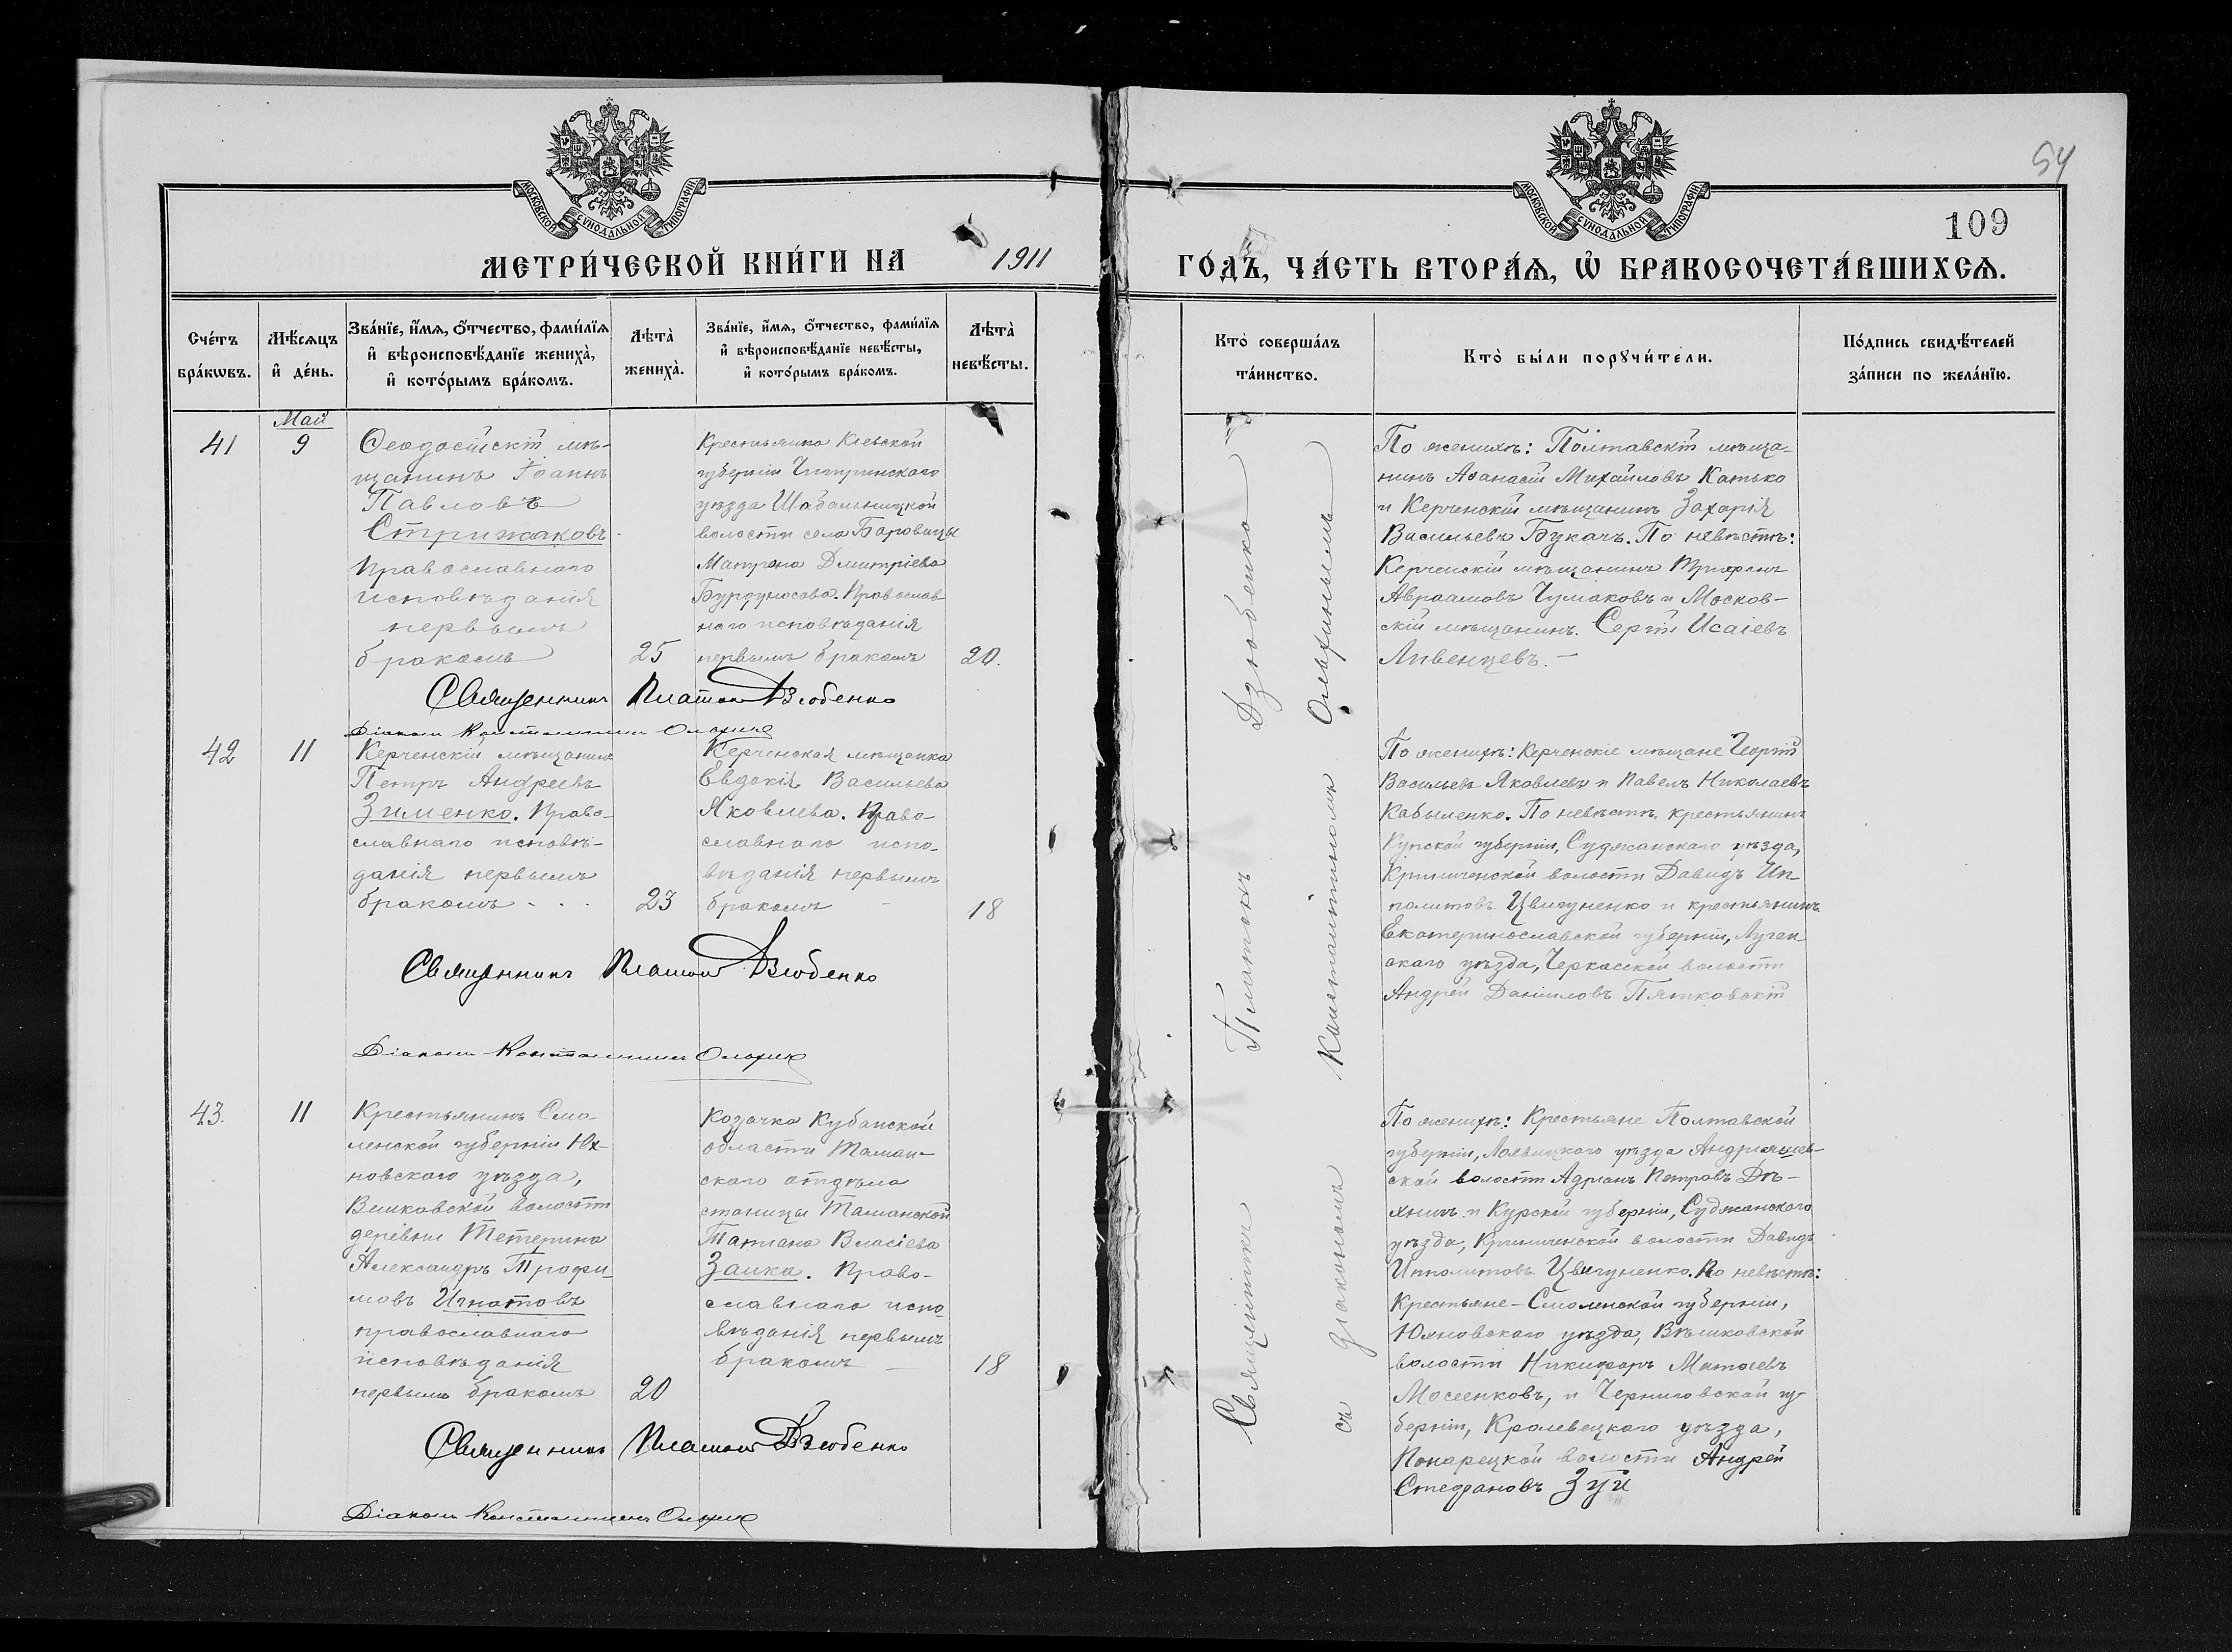 МОСКОВСКОЙ СѴНОДАЛЬНОЙ ТИПОГРАФІИ
МЕТРИ́ЧЕСКОЙ КНИ́ГИ НА 1911
Сче́тъ бра́кѡвъ.
Мѣ́сяцъ и҆ де́нь.
Зва́нїе, и҆́мѧ, ѻ҆́тчество, фами́лїѧ
и҆ вѣроисповѣ́данїе жениха̀,
и҆ кото́рымъ бра́комъ.
Лѣта̀ жениха̀.
Зва́нїе, и҆́мѧ, ѻ҆́тчество, фами́лїѧ
и҆ вѣроисповѣ́данїе невѣ́сты,
и҆ кото́рымъ бра́комъ.
Лѣта̀ невѣ́сты.
Май
41
9
Ѳеодосійскій мѣ-
щанинъ Іоаннъ
Павловъ
Стрижаковъ
православнаго
исповѣданія
первымъ
бракомъ
25
Крестьянка Кіевской
губерніи Чигиринскаго
уѣзда Шабельницкой
волости села Боровицы
Матрона Димитріева
Бурдуносова. Православ-
наго исповѣданія
первымъ бракомъ
20.
Священникъ Платонъ Дзюбенко
Діаконъ Константинъ Ольхинъ
42
11
Керченскій мѣщанинъ
Петръ Андреевъ
Зименко. Право-
славнаго исповѣ-
данія первымъ
бракомъ
23
Керченская мѣщанка
Евдокія Васильева
Яковлева. Право-
славнаго испо-
вѣданія первымъ
бракомъ
18
Священникъ Платонъ Дзюбенко
Діаконъ Константинъ Ольхинъ
43.
11
Крестьянинъ Смо-
ленской губерніи Юх-
новскаго уѣзда,
Вешковской волости
деревни Тетерина
Александръ Трофи-
мовъ Игнатовъ
православнаго
исповѣданія
первымъ бракомъ
20
Козачка Кубанской
области Таман-
скаго отдѣла
станицы Таманской
Татіана Власіева
Заика. Право-
славнаго испо-
вѣданія первымъ
бракомъ
18
Священникъ Платонъ Дзюбенко
Діаконъ Константинъ Ольхинъ
54
109
МОСКОВСКОЙ СѴНОДАЛЬНОЙ ТИПОГРАФІИ
ГО́ДЪ, ЧА́СТЬ ВТОРА́Ѧ, Ѡ҆ БРАКОСОЧЕТА́ВШИХСѦ.
Кто̀ соверша́лъ
та́инство.
Кто̀ бы́ли порꙋчи́тели.
По́дпись свидѣ́телей
за́писи по жела́нїю.
Священникъ Платонъ Дзюбенко
съ діакономъ Константиномъ Ольхинымъ
По женихѣ: Полтавскій мѣща-
нинъ Аѳанасій Михайловъ Катько
и Керченскій мѣщанинъ Захарія
Васильевъ Букачъ. По невѣстѣ:
Керченскій мѣщанинъ Трифонъ
Авраамовъ Чумаковъ и Москов-
скій мѣщанинъ Сергій Исаіевъ
Ливенцевъ.
По женихѣ: Керченскіе мѣщане Георгій
Васильевъ Яковлевъ и Павелъ Николаевъ
Кабыленко. По невѣстѣ, крестьянинъ
Курской губерніи, Суджанскаго уѣзда,
волости Давидъ Ип-
политовъ Цвигуненко и крестьянинъ
Екатеринославской губерніи, Луган-
скаго уѣзда, Черкасской волости
Андрей Даніиловъ Пятковскій
По женихѣ: Крестьяне Полтавской
губерніи, уѣзда
волости Адріанъ Петровъ Дѣ-
хникъ и Курской губерніи, Суджанскаго
уѣзда, волости Давидъ
Ипполитовъ Цвигуненко. По невѣстѣ:
Крестьяне-Смоленской губерніи,
Юхновскаго уѣзда, Вѣшковской
волости Никифоръ
Мосеенковъ, и Черниговской гу-
берніи, Кролевецкаго уѣзда,
Понарецкой волости Андрей
Стефановъ Зуй